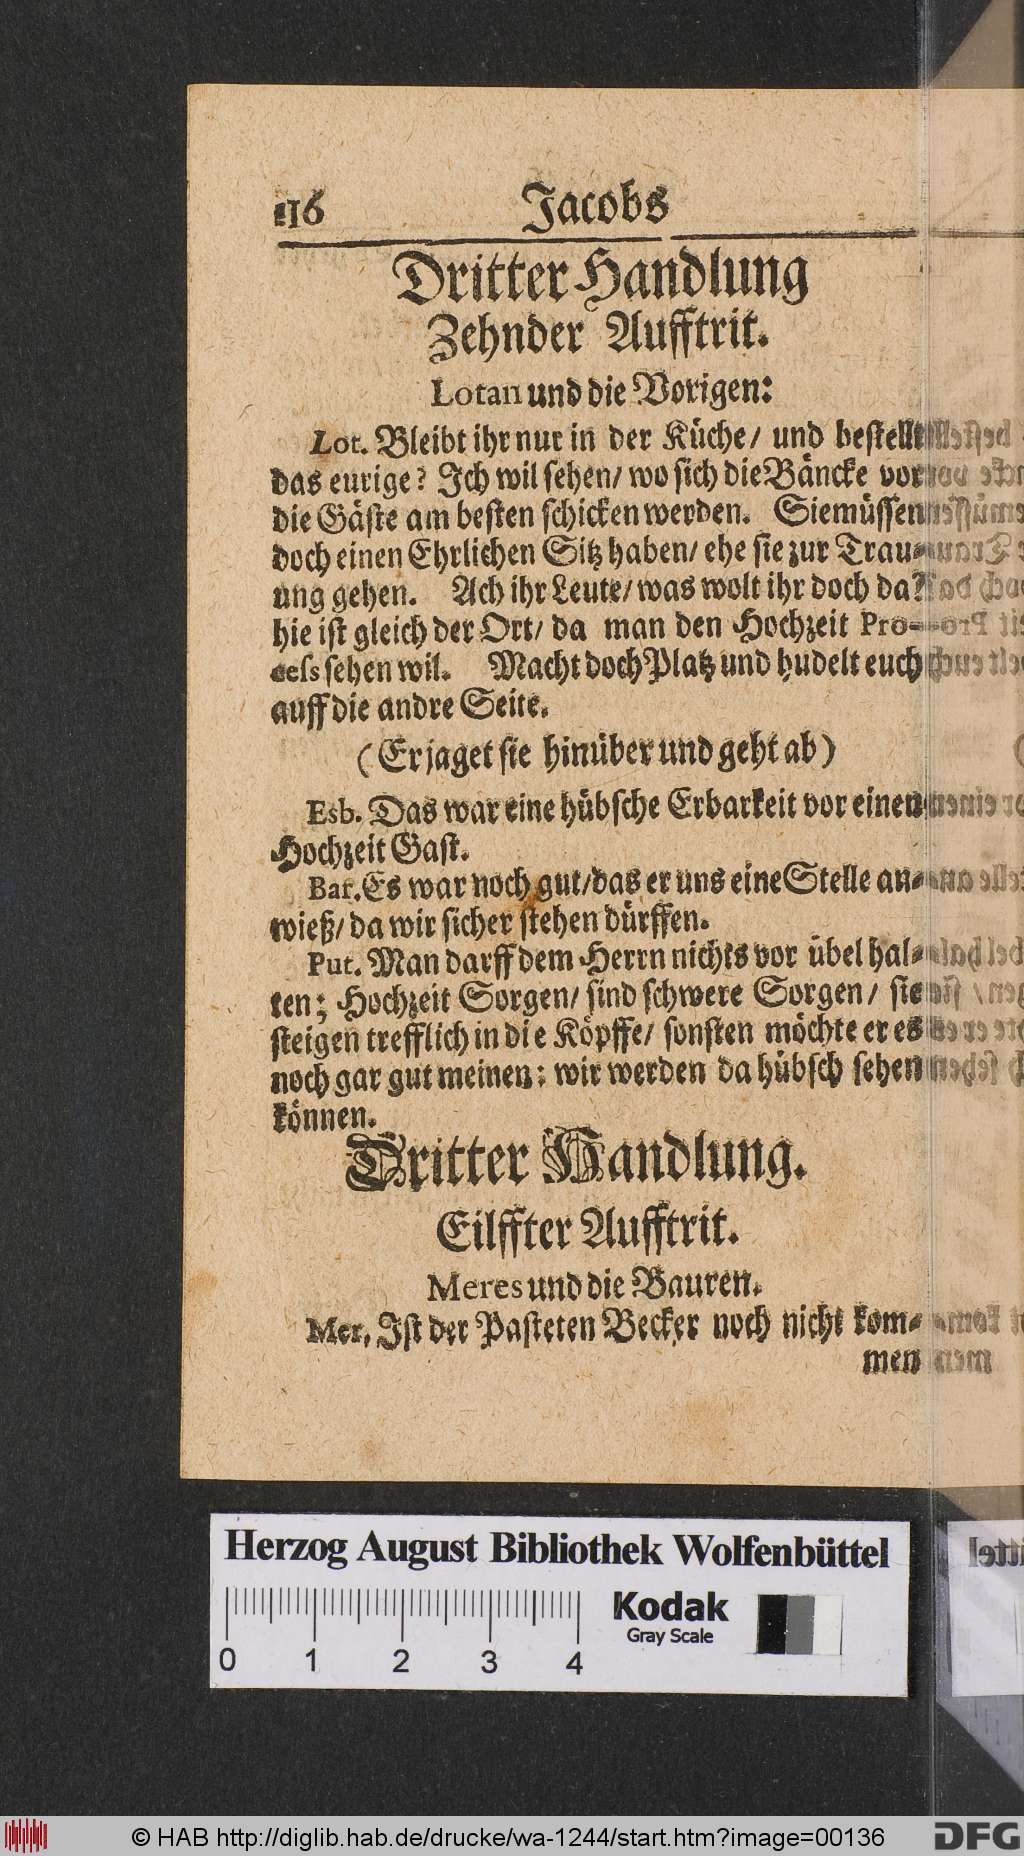 116 Jacobs
Dritter Handlung
Zehnder Aufftrit.
Lotan und die Vorigen:
Lot. Bleibt ihr nur in der Küche/ und bestellt
das eurige? Ich wil sehen/ wo sich die Bäncke vor
die Gäste am besten schicken werden. Sie müssen
doch einen Ehrlichen Sitz haben/ ehe sie zur Trau-
ung gehen. Ach ihr Leute/ was wolt ihr doch da?
hie ist gleich der Ort/ da man den Hochzeit Pro-
cess sehen wil. Macht doch Platz und hudelt euch
auff die andre Seite.
(Er jaget sie hinüber und geht ab)
Esb. Das war eine hübsche Erbarkeit vor einen
Hochzeit Gast.
Bar. Es war noch gut/ das er uns eine Stelle an-
wieß/ da wir sicher stehen dürffen.
Put. Man darff dem Herrn nichts vor übel hal-
ten; Hochzeit Sorgen/ sind schwere Sorgen/ sie
steigen trefflich in die Köpffe/ sonsten möchte er es
noch gar gut meinen: wir werden da hübsch sehen
können.
Dritter Handlung.
Eilffter Aufftrit.
Meres und die Bauren.
Mer. Ist der Pasteten Becker noch nicht kom-
men
Herzog August Bibliothek Wolfenbüttel
Kodak
Gray Scale
0 1 2 3 4
© HAB http://diglib.hab.de/drucke/wa-1244/start.htm?image=00136
DFG